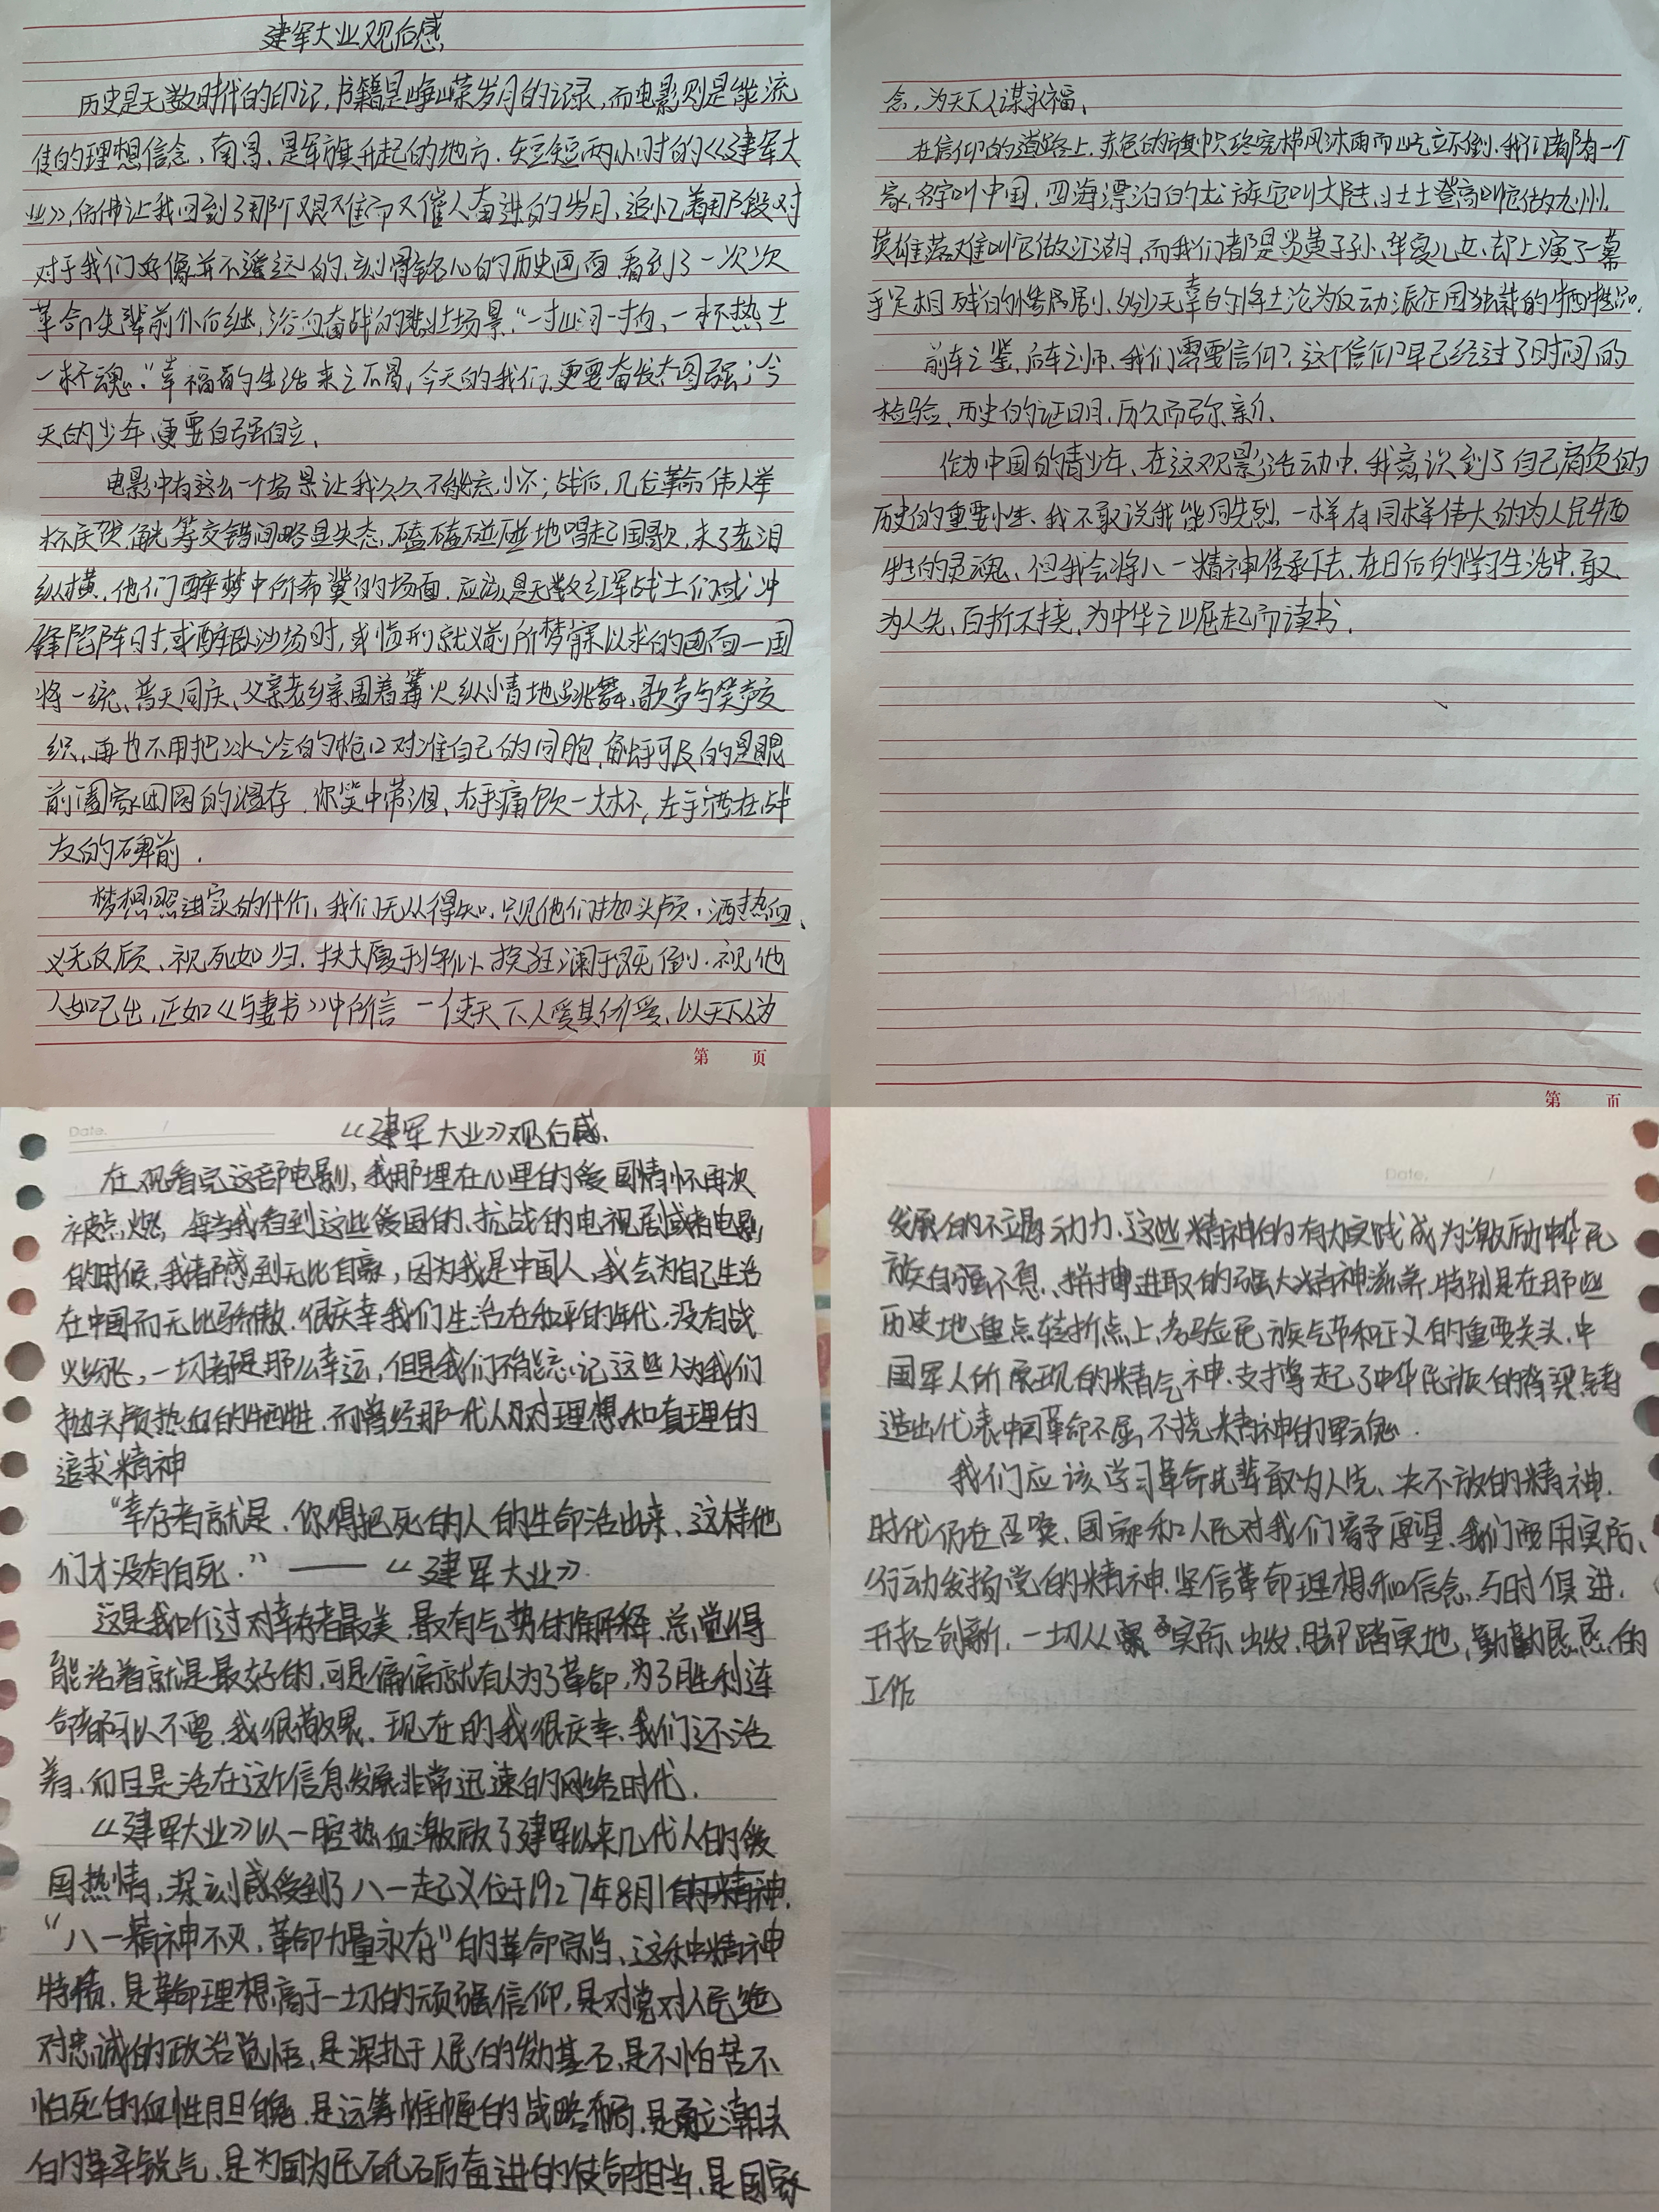 建军大业观后感
历史是无数时代的印记,书籍是峥嵘岁月的记录,而电影则是能流
传的理想信念、南昌、是军旗升起的地方、短短两小时的《建军大
业》,仿佛让我回到了那个艰难而又催人奋进的岁月、追忆着那段对
对于我们好像并不遥远的、刻骨铭心的历史画面,看到了一次次
革命先辈前仆后继,浴血奋战的悲壮场景、“一寸山河一寸血,一抔热土
一抔魂。”幸福的生活来之不易,今天的我们,更要奋发图强;今
天的少年、更要自强自立、
电影中有这么一个场景让我久久不能忘怀;战后,几位革命伟人举
杯庆贺,觥筹交错间略显失态,磕磕碰碰地唱起国歌,末了老泪
纵横,他们醉梦中所希冀的场面,应该是无数红军战士们或冲
锋陷阵时,或醉卧沙场时,或临刑就义前所梦寐以求的画面一国
将一统、普天同庆、父亲老乡亲围着篝火纵情地跳舞、歌声与笑声交
织,再也不用把冰冷的枪口对准自己的同胞,触手可及的是眼
前阖家团圆的温存,你笑中带泪、右手痛饮一大杯,左手洒在战
友的碑前.
梦想照进的代价,我们无从得知,只见他们抛头颅,洒热血、
义无反顾、视死如归、扶大厦于,挽狂澜于既倒、视他
人如己出,正如《与妻书》中所言一使天下人爱其所爱、以天下人为
念,为天下人谋永福、
在信仰的道路上,赤色的旗帜终究栉风沐雨而屹立不倒、我们都有一个
家,名字叫中国,四海漂泊的龙族它叫大陆,壮士登高叫它做九州,
英雄落难叫它做江湖,而我们都是炎黄子孙、华夏儿女,却上演了一幕
手足相残的惨剧,多少无辜的将士沦为反动派征用独裁的牺牲品.
前车之鉴,后车之师、我们需要信仰?这个信仰早已经过了时间的
检验、历史的证明,历久而弥新、
作为中国的青少年、在这观影活动中,我意识到了自己肩负的
历史的重要性、我不敢说我能同先烈一样有同样伟大的为人民牺
牲的灵魂、但我会将八一精神传承下去,在日后的学习生活中,敢
为人先,百折不挠,为中华之崛起而读书.
第 页
第 页
Date. /
《建军大业》观后感、
在观看完这部电影,我那埋在心里的爱国情怀再次
被点燃,每当我看到这些爱国的、抗战的电视剧或者电影
的时候,我都感到无比自豪,因为我是中国人,我会为自己生活
在中国而无比骄傲.很庆幸我们生活在和平的年代,没有战
火纷飞,一切都是那么幸运,但是我们不能忘记这些人为我们
抛头颅热血的牺牲,而曾经那一代人对理想和真理的
追求精神
“幸存者就是、你得把死的人的生命活出来、这样他
们才没有白死.”——《建军大业》
这是我听过对幸存者最美,最有气势的解释,总觉得
能活着就是最好的,可是偏偏就有人为了革命,为了胜利连
命都可以不要,我很敬畏,现在的我很庆幸、我们还活
着、而且是活在这个信息发展非常迅速的网络时代.
《建军大业》以一腔热血激励了建军以来几代人的爱
国热情,深刻感受到了八一起义位于1927年8月1的精神.
“八一精神不灭,革命力量永存”的革命宗旨、这种精神
特质,是革命理想高于一切的顽强信仰,是对党对人民绝
对忠诚的政治觉悟,是深扎于人民的发力基石,是不怕苦不
怕死的血性胆魄,是运筹帷幄的战略布局,是勇立潮头
的革辛锐气,是为国为民砥砺奋进的使命担当,是国家
Date. /
发展的不竭动力、这些精神的有力实践成为激励中华民
族自强不息、拼搏进取的强大精神滋养,特别是在那些
历史地重点转折点上、考验民族气节和正义的重要关头,中
国军人所展现的精气神,支撑起了中华民族的脊梁,铸
造出代表中国革命不屈,不挠精神的军魂.
我们应该学习革命先辈敢为人先、决不放的精神.
时代仍在召唤、国家和人民对我们寄予厚望,我们要用实际、
行动发扬党的精神,坚信革命理想和信念,与时俱进.
开拓创新,一切从实际出发,脚踏实地,勤勤恳恳的
工作